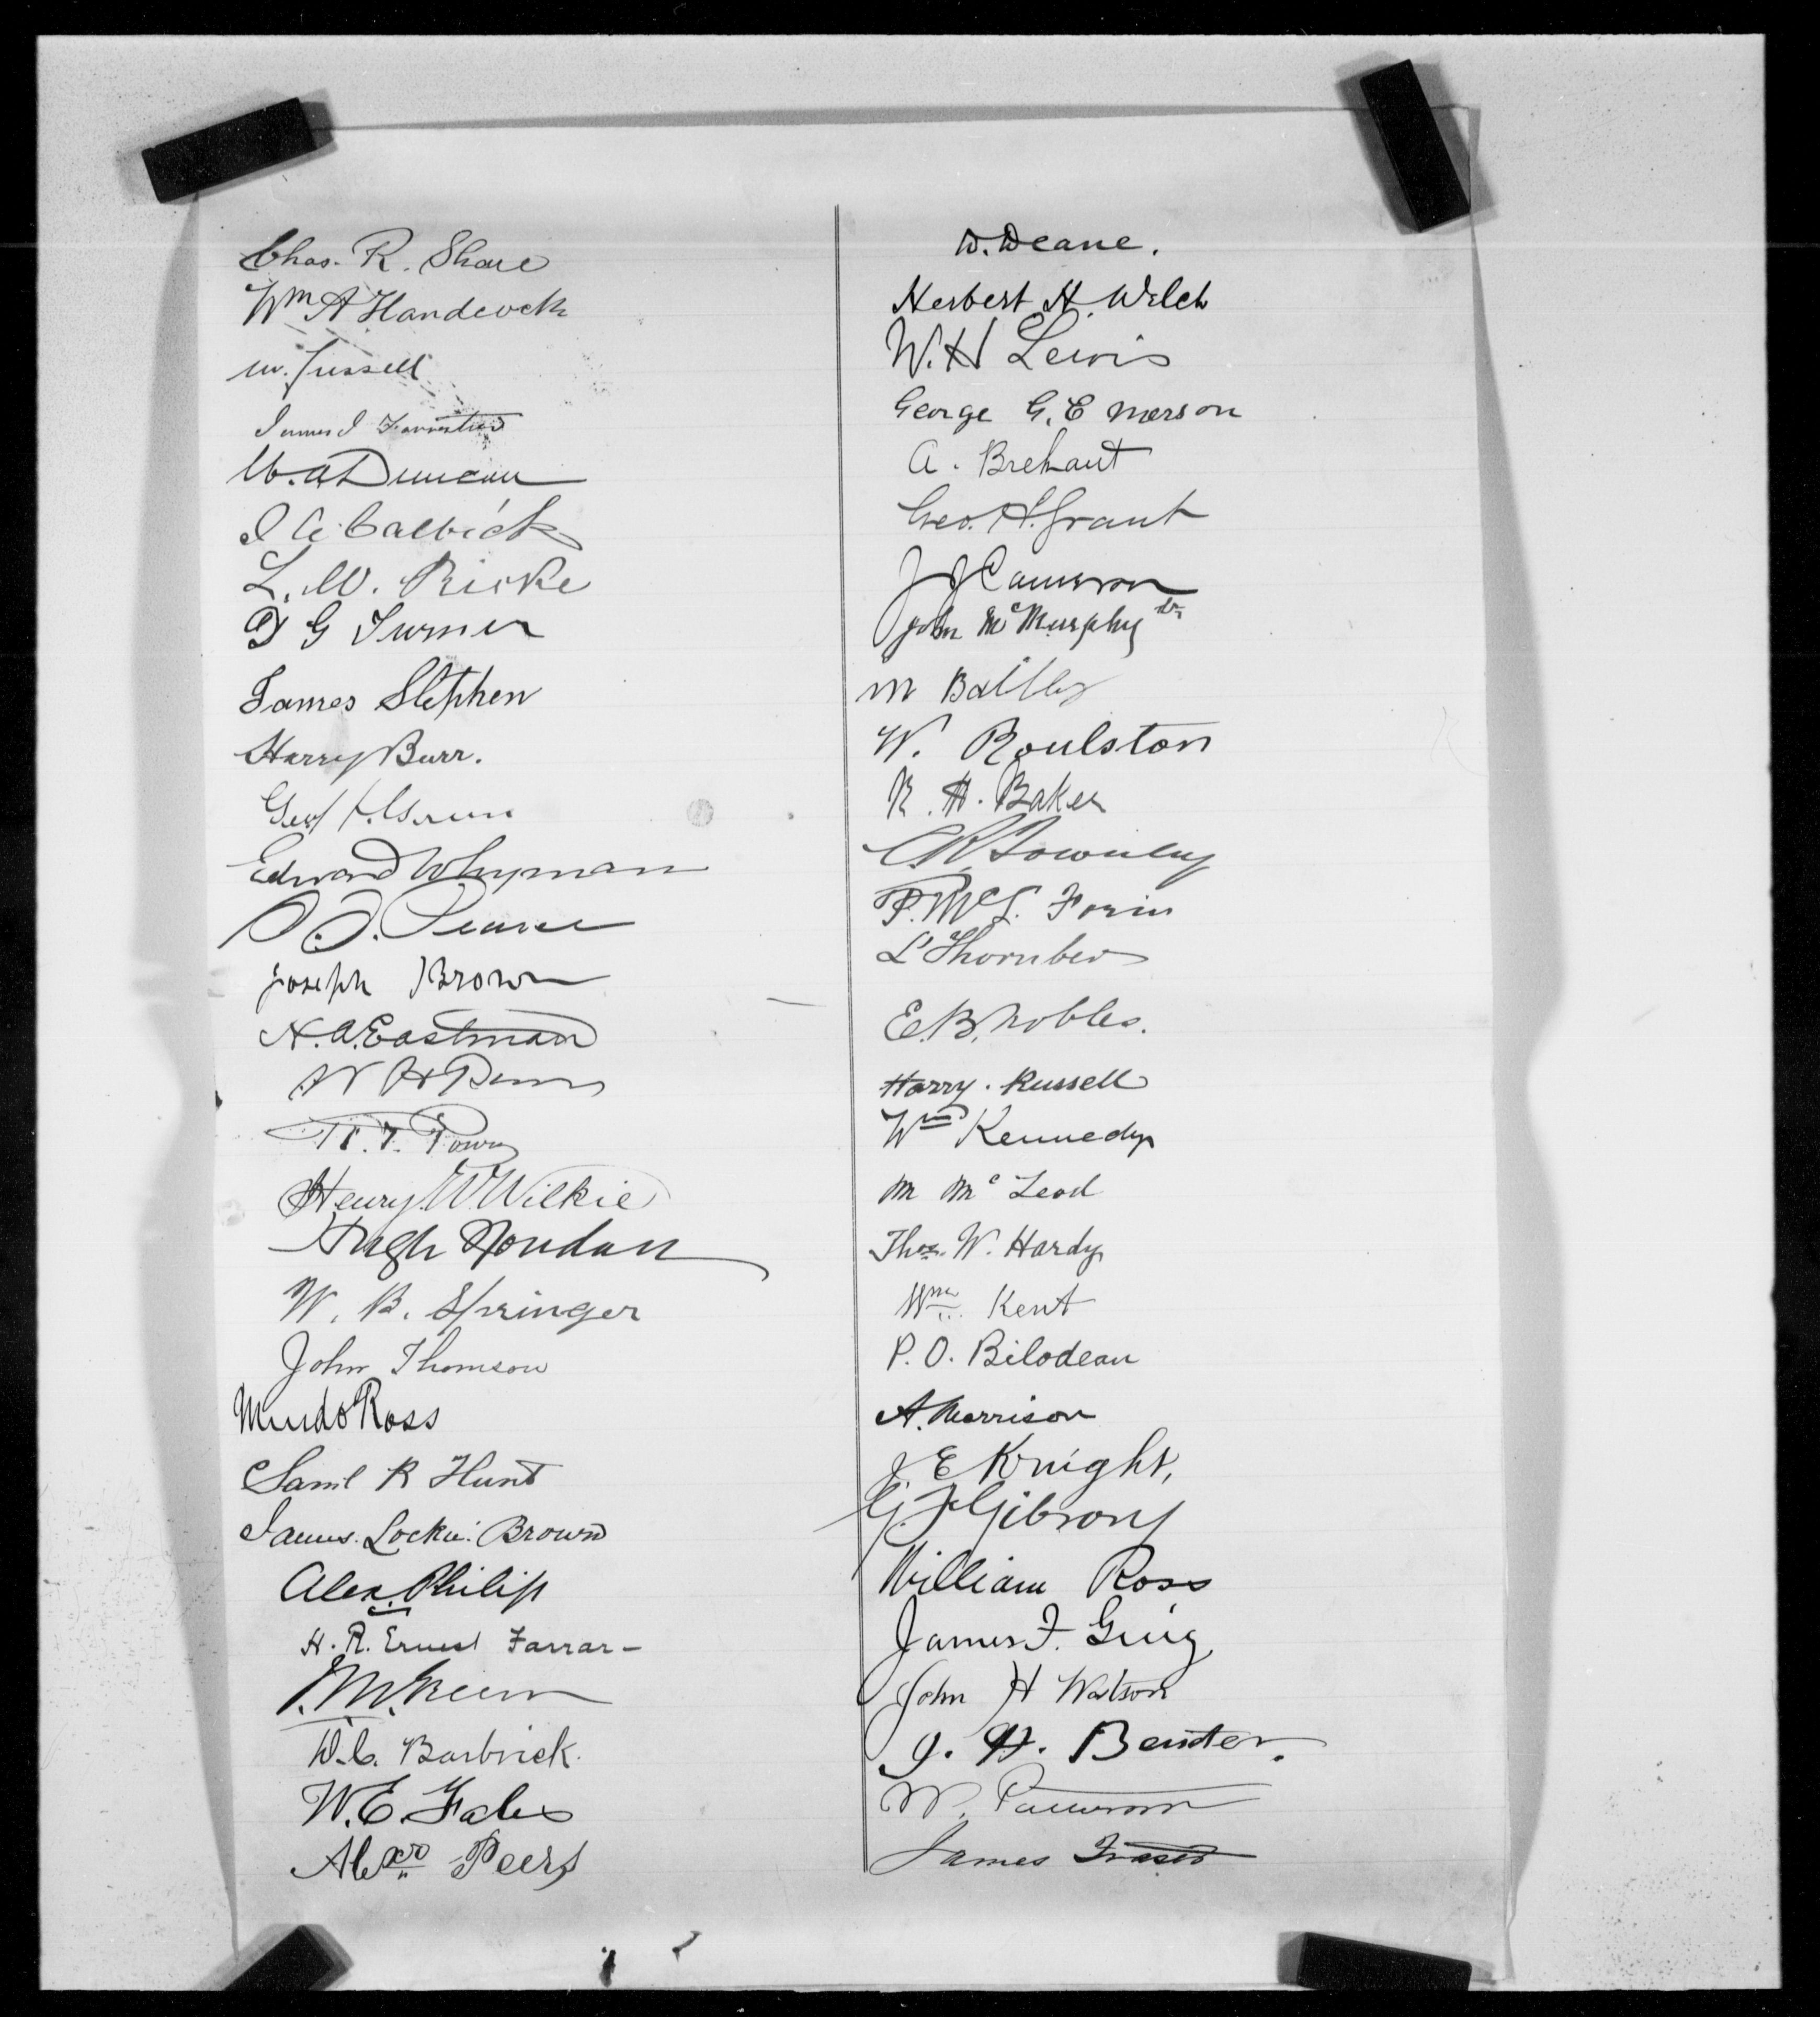 Chas. R. Share
Wm A Handcock
W. Jussell
James
W. A. Duncan
J A Calbick
L. W. Ricke
D G Turner
James Stephen
Harry Burr.
Geo
Edward Whyman
Pearce
Joseph Brown
N. A. Eastman
W H
T.
Henry W Wilkie
Hugh
W. B. Springer
John Thomson
Murdo Ross
Saml R Hunt
James Lockie Brown
Alex. Philip
H. R. Ernest Farrar -
W. C. Barbrick.
W. E. Fales
Alexr Peers
W. Deane.
Herbert H. Welch
W. H Lewis
George G. E merson
A. Brehaut
Geo. H. Grant
J J Cameron
John McMurphy Sr
M Battles
W. Roulston
R. H. Baker
C. R. Townley
P. McL. Forin
L Thornber
E. B. Nobles.
Harry. Russell
Wm Kennedy
M McLeod
Thos. W. Hardy
Wm Kent
P. O. Bilodeau
A. Morrison
J E Knight,
G. F Gibson
William Ross
James F. Greig
John H Watson
J. H. Bender.
W. Paterson
James Fraser